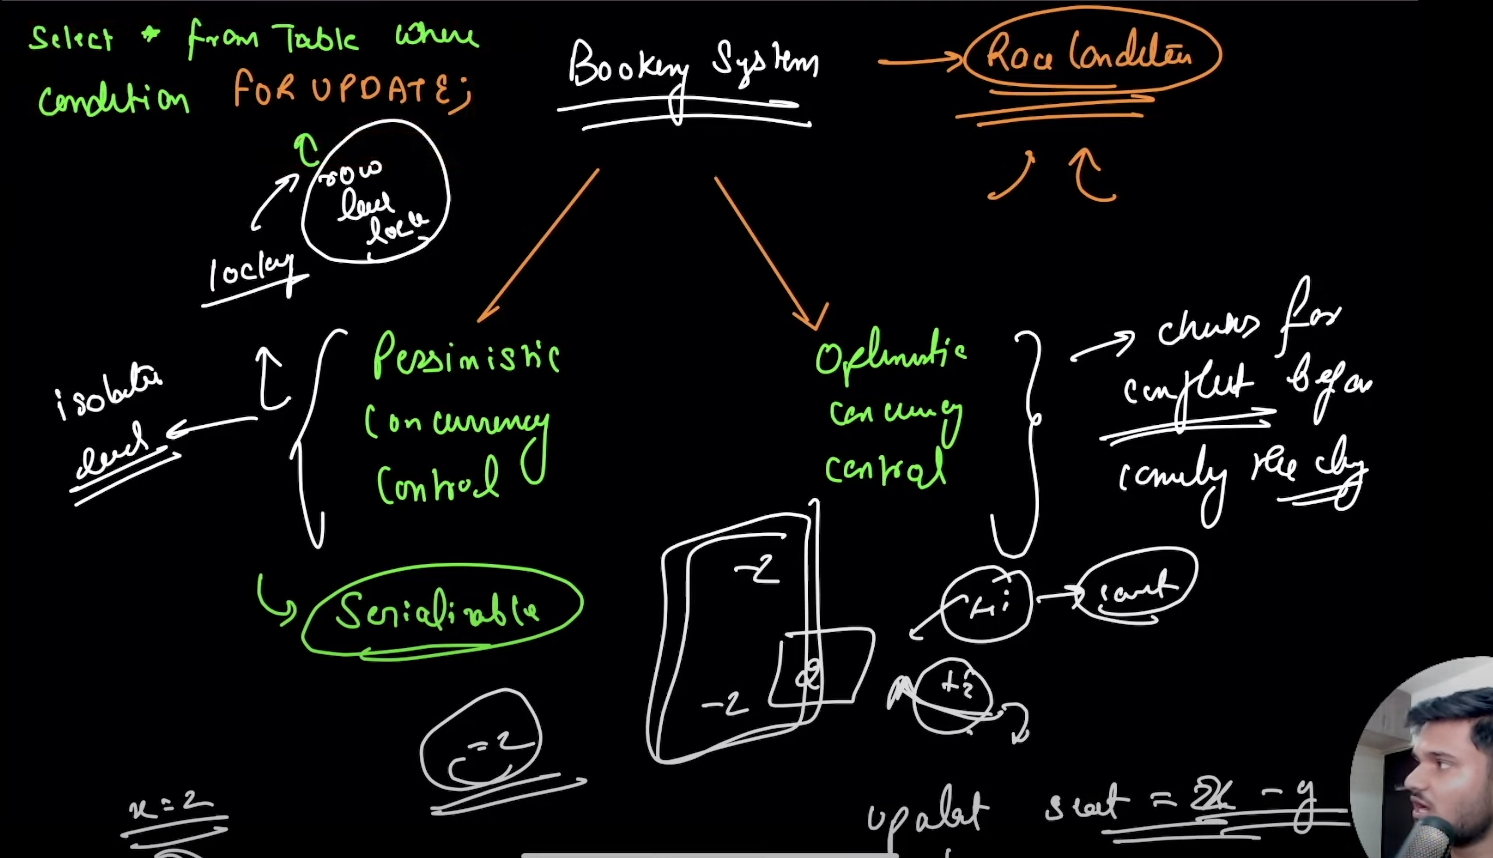 Select * from Table where
condition FOR UPDATE;
Booking System
Race Condition
row
level
lock
locking
isolation
level
Pessimistic
Concurrency
Control
Optimistic
concurrency
control
checks for
conflict before
Serializable
-2
-2
2
t1
t2
= 2
x = 2
update seat = x - y